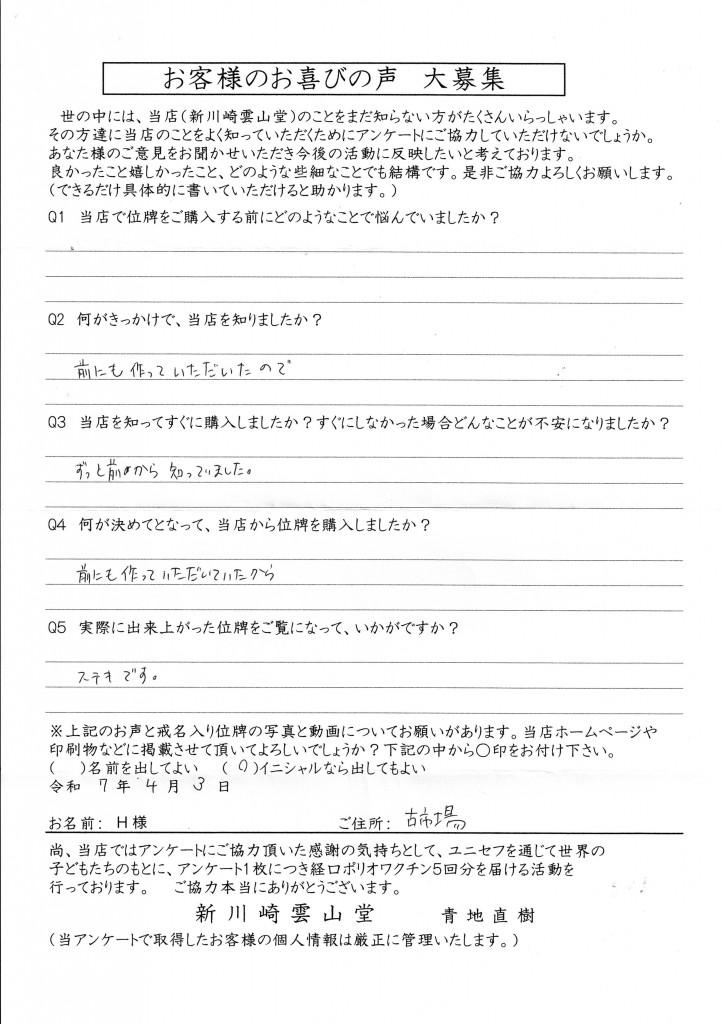 お客様のお喜びの声　大募集
世の中には、当店(新川崎雲山堂)のことをまだ知らない方がたくさんいらっしゃいます。
その方達に当店のことをよく知っていただくためにアンケートにご協力していただけないでしょうか。
あなた様のご意見をお聞かせいただき今後の活動に反映したいと考えております。
良かったこと嬉しかったこと、どのような些細なことでも結構です。是非ご協力よろしくお願いします。
(できるだけ具体的に書いていただけると助かります。)
Q1　当店で位牌をご購入する前にどのようなことで悩んでいましたか？
Q2　何がきっかけで、当店を知りましたか？
前にも作っていただいたので
Q3　当店を知ってすぐに購入しましたか？すぐにしなかった場合どんなことが不安になりましたか？
ずっと前から知っていました。
Q4　何が決めてとなって、当店から位牌を購入しましたか？
前にも作っていただいていたから
Q5　実際に出来上がった位牌をご覧になって、いかがですか？
ステキです。
※上記のお声と戒名入り位牌の写真と動画についてお願いがあります。当店ホームページや
印刷物などに掲載させて頂いてよろしいでしょうか？下記の中から〇印をお付け下さい。
(　)名前を出してよい　(〇)イニシャルなら出してもよい
令和 7 年 4 月 3 日
お名前：H様　ご住所：古市場
尚、当店ではアンケートにご協力頂いた感謝の気持ちとして、ユニセフを通じて世界の
子どもたちのもとに、アンケート1枚につき経口ポリオワクチン5回分を届ける活動を
行っております。　ご協力本当にありがとうございます。
新川崎雲山堂　青地直樹
(当アンケートで取得したお客様の個人情報は厳正に管理いたします。)